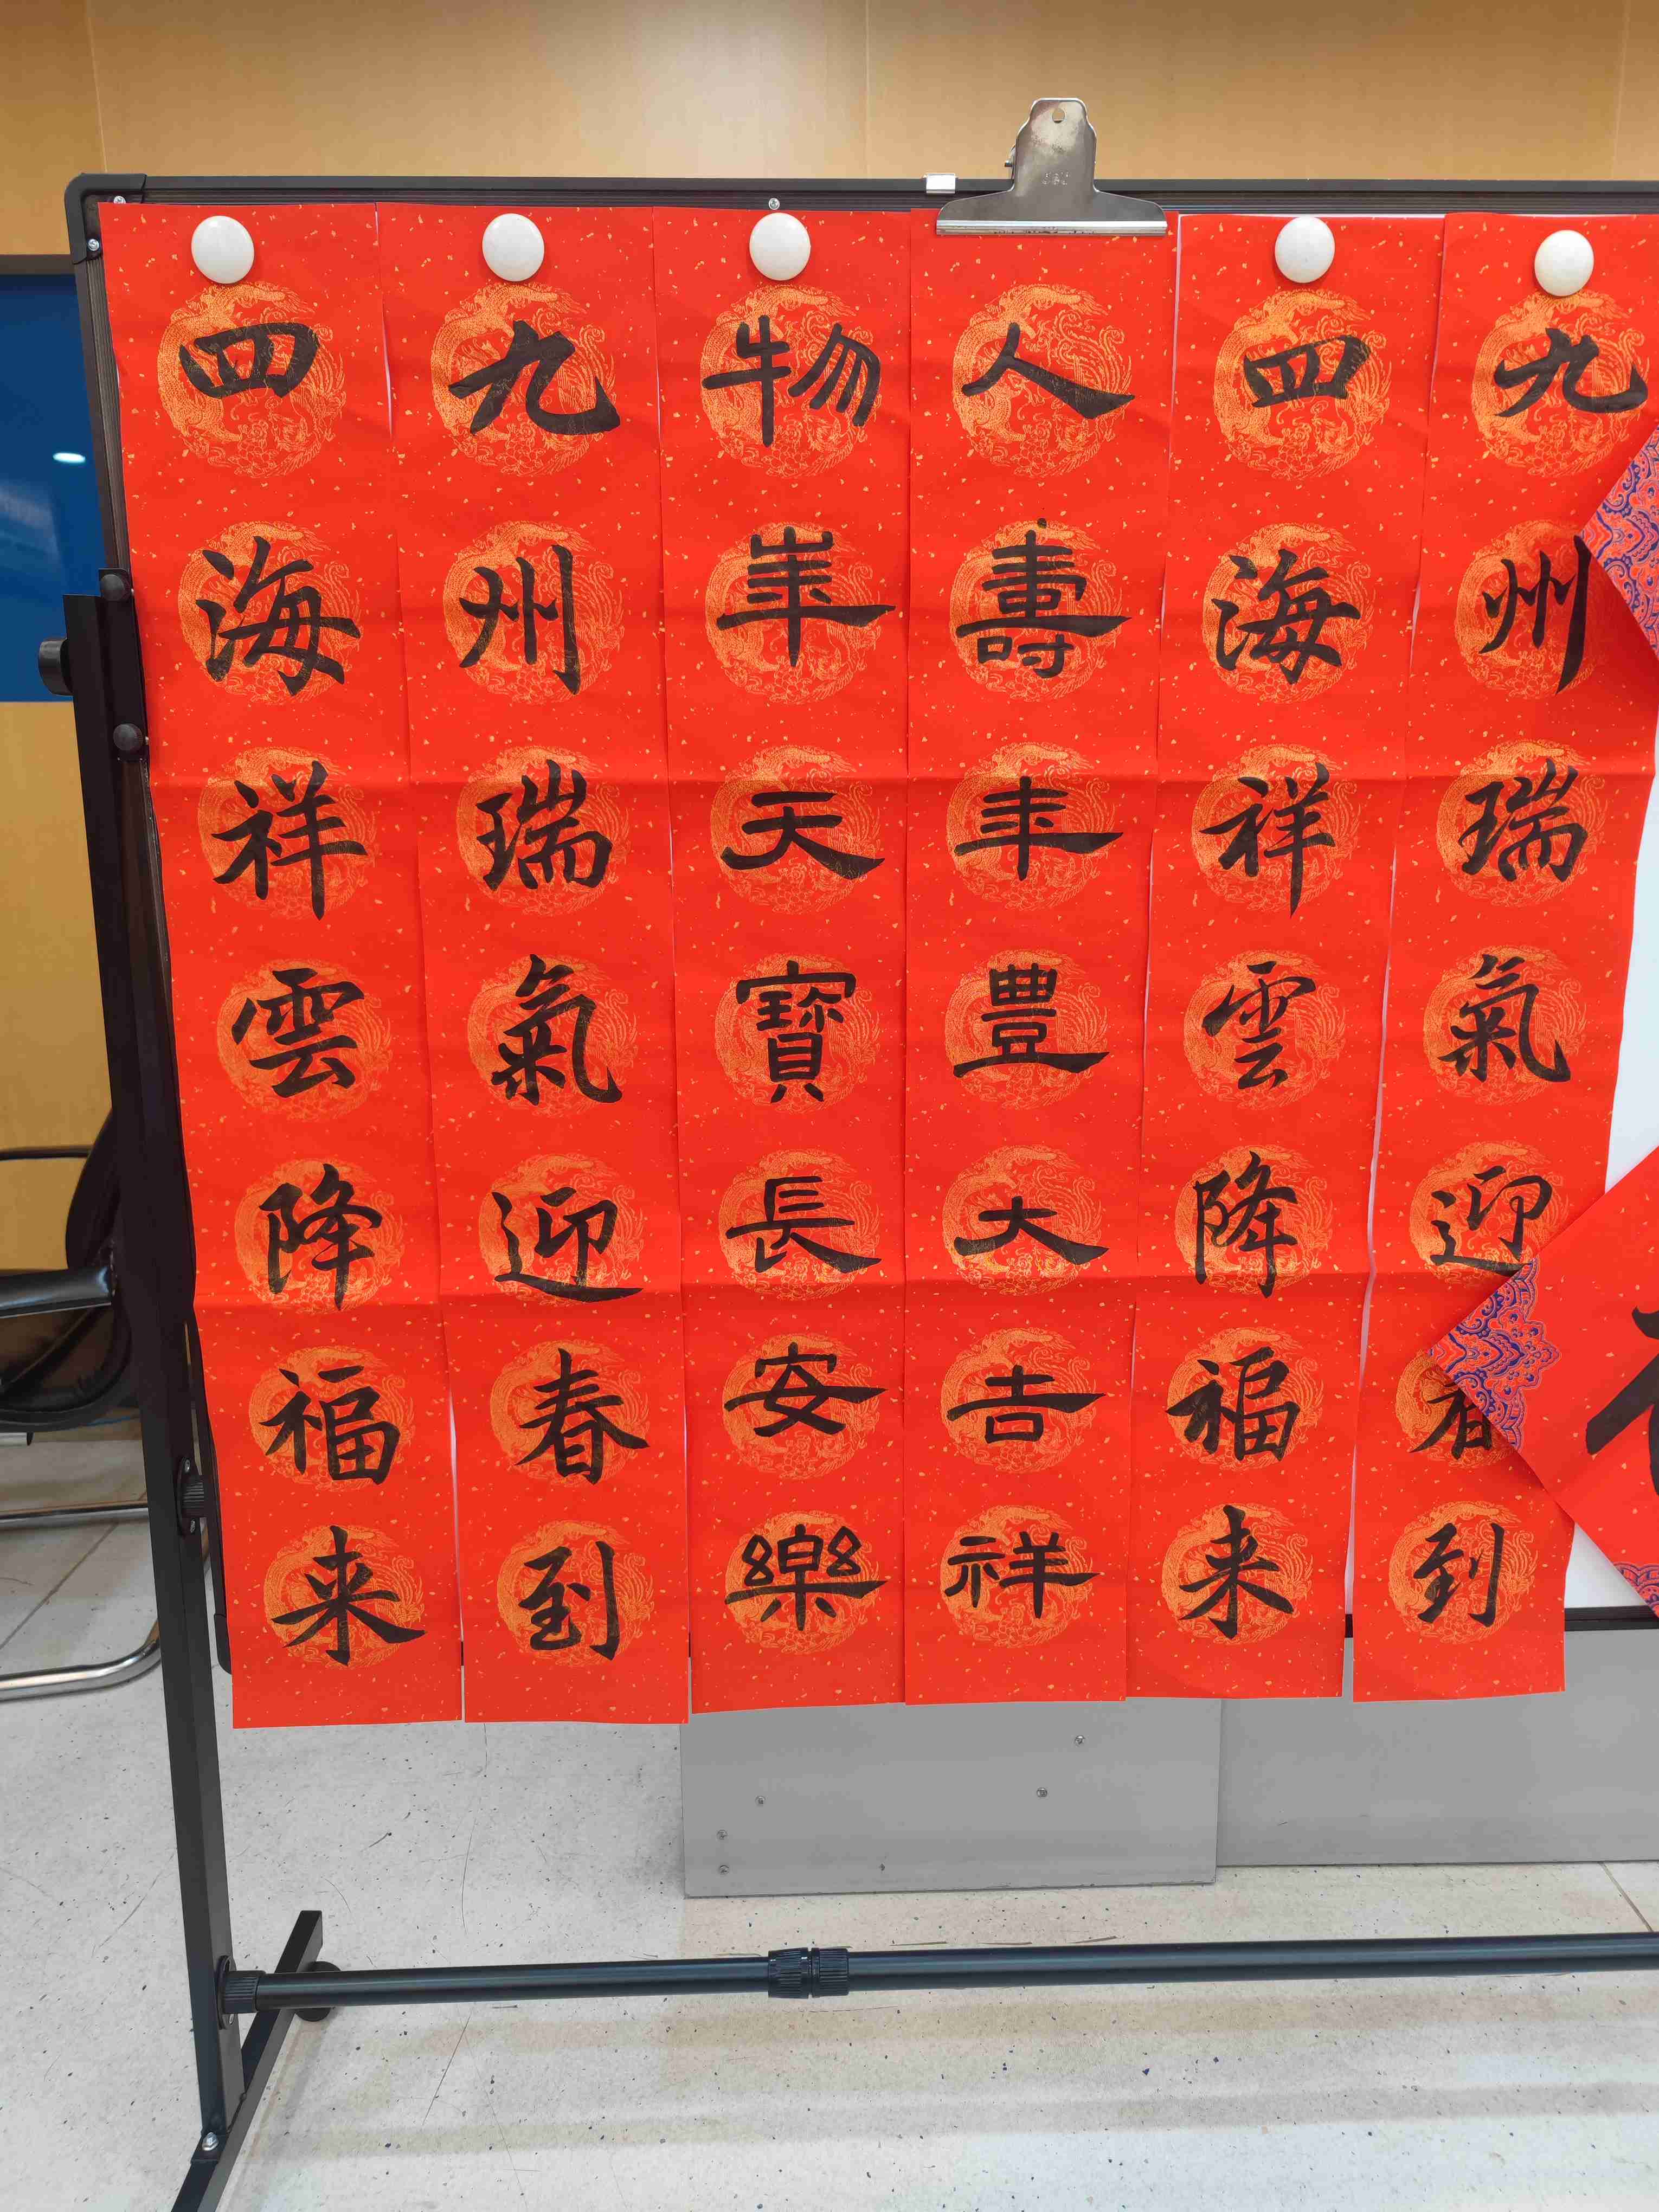 九州瑞氣迎春到
四海祥雲降福来
人壽年豊大吉祥
物華天寶長安樂
九州瑞氣迎春到
四海祥雲降福来